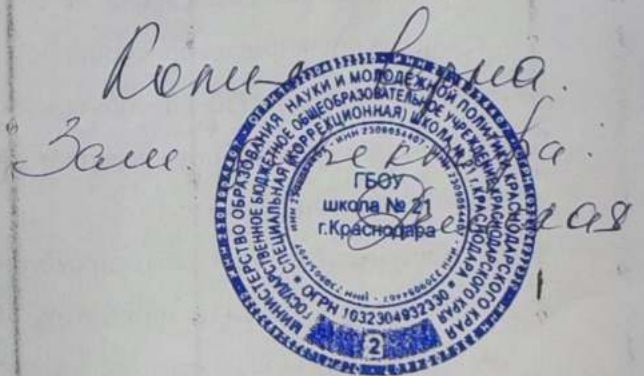 Копия верна.
Зам. директора
МИНИСТЕРСТВО ОБРАЗОВАНИЯ НАУКИ И МОЛОДЕЖНОЙ ПОЛИТИКИ КРАСНОДАРСКОГО КРАЯ
ГОСУДАРСТВЕННОЕ БЮДЖЕТНОЕ ОБЩЕОБРАЗОВАТЕЛЬНОЕ УЧРЕЖДЕНИЕ КРАСНОДАРСКОГО КРАЯ
СПЕЦИАЛЬНАЯ (КОРРЕКЦИОННАЯ) ШКОЛА № 21 Г.КРАСНОДАРА
ОГРН 1032304932330
ИНН 2309054407
ГБОУ
школа № 21
г.Краснодара
2